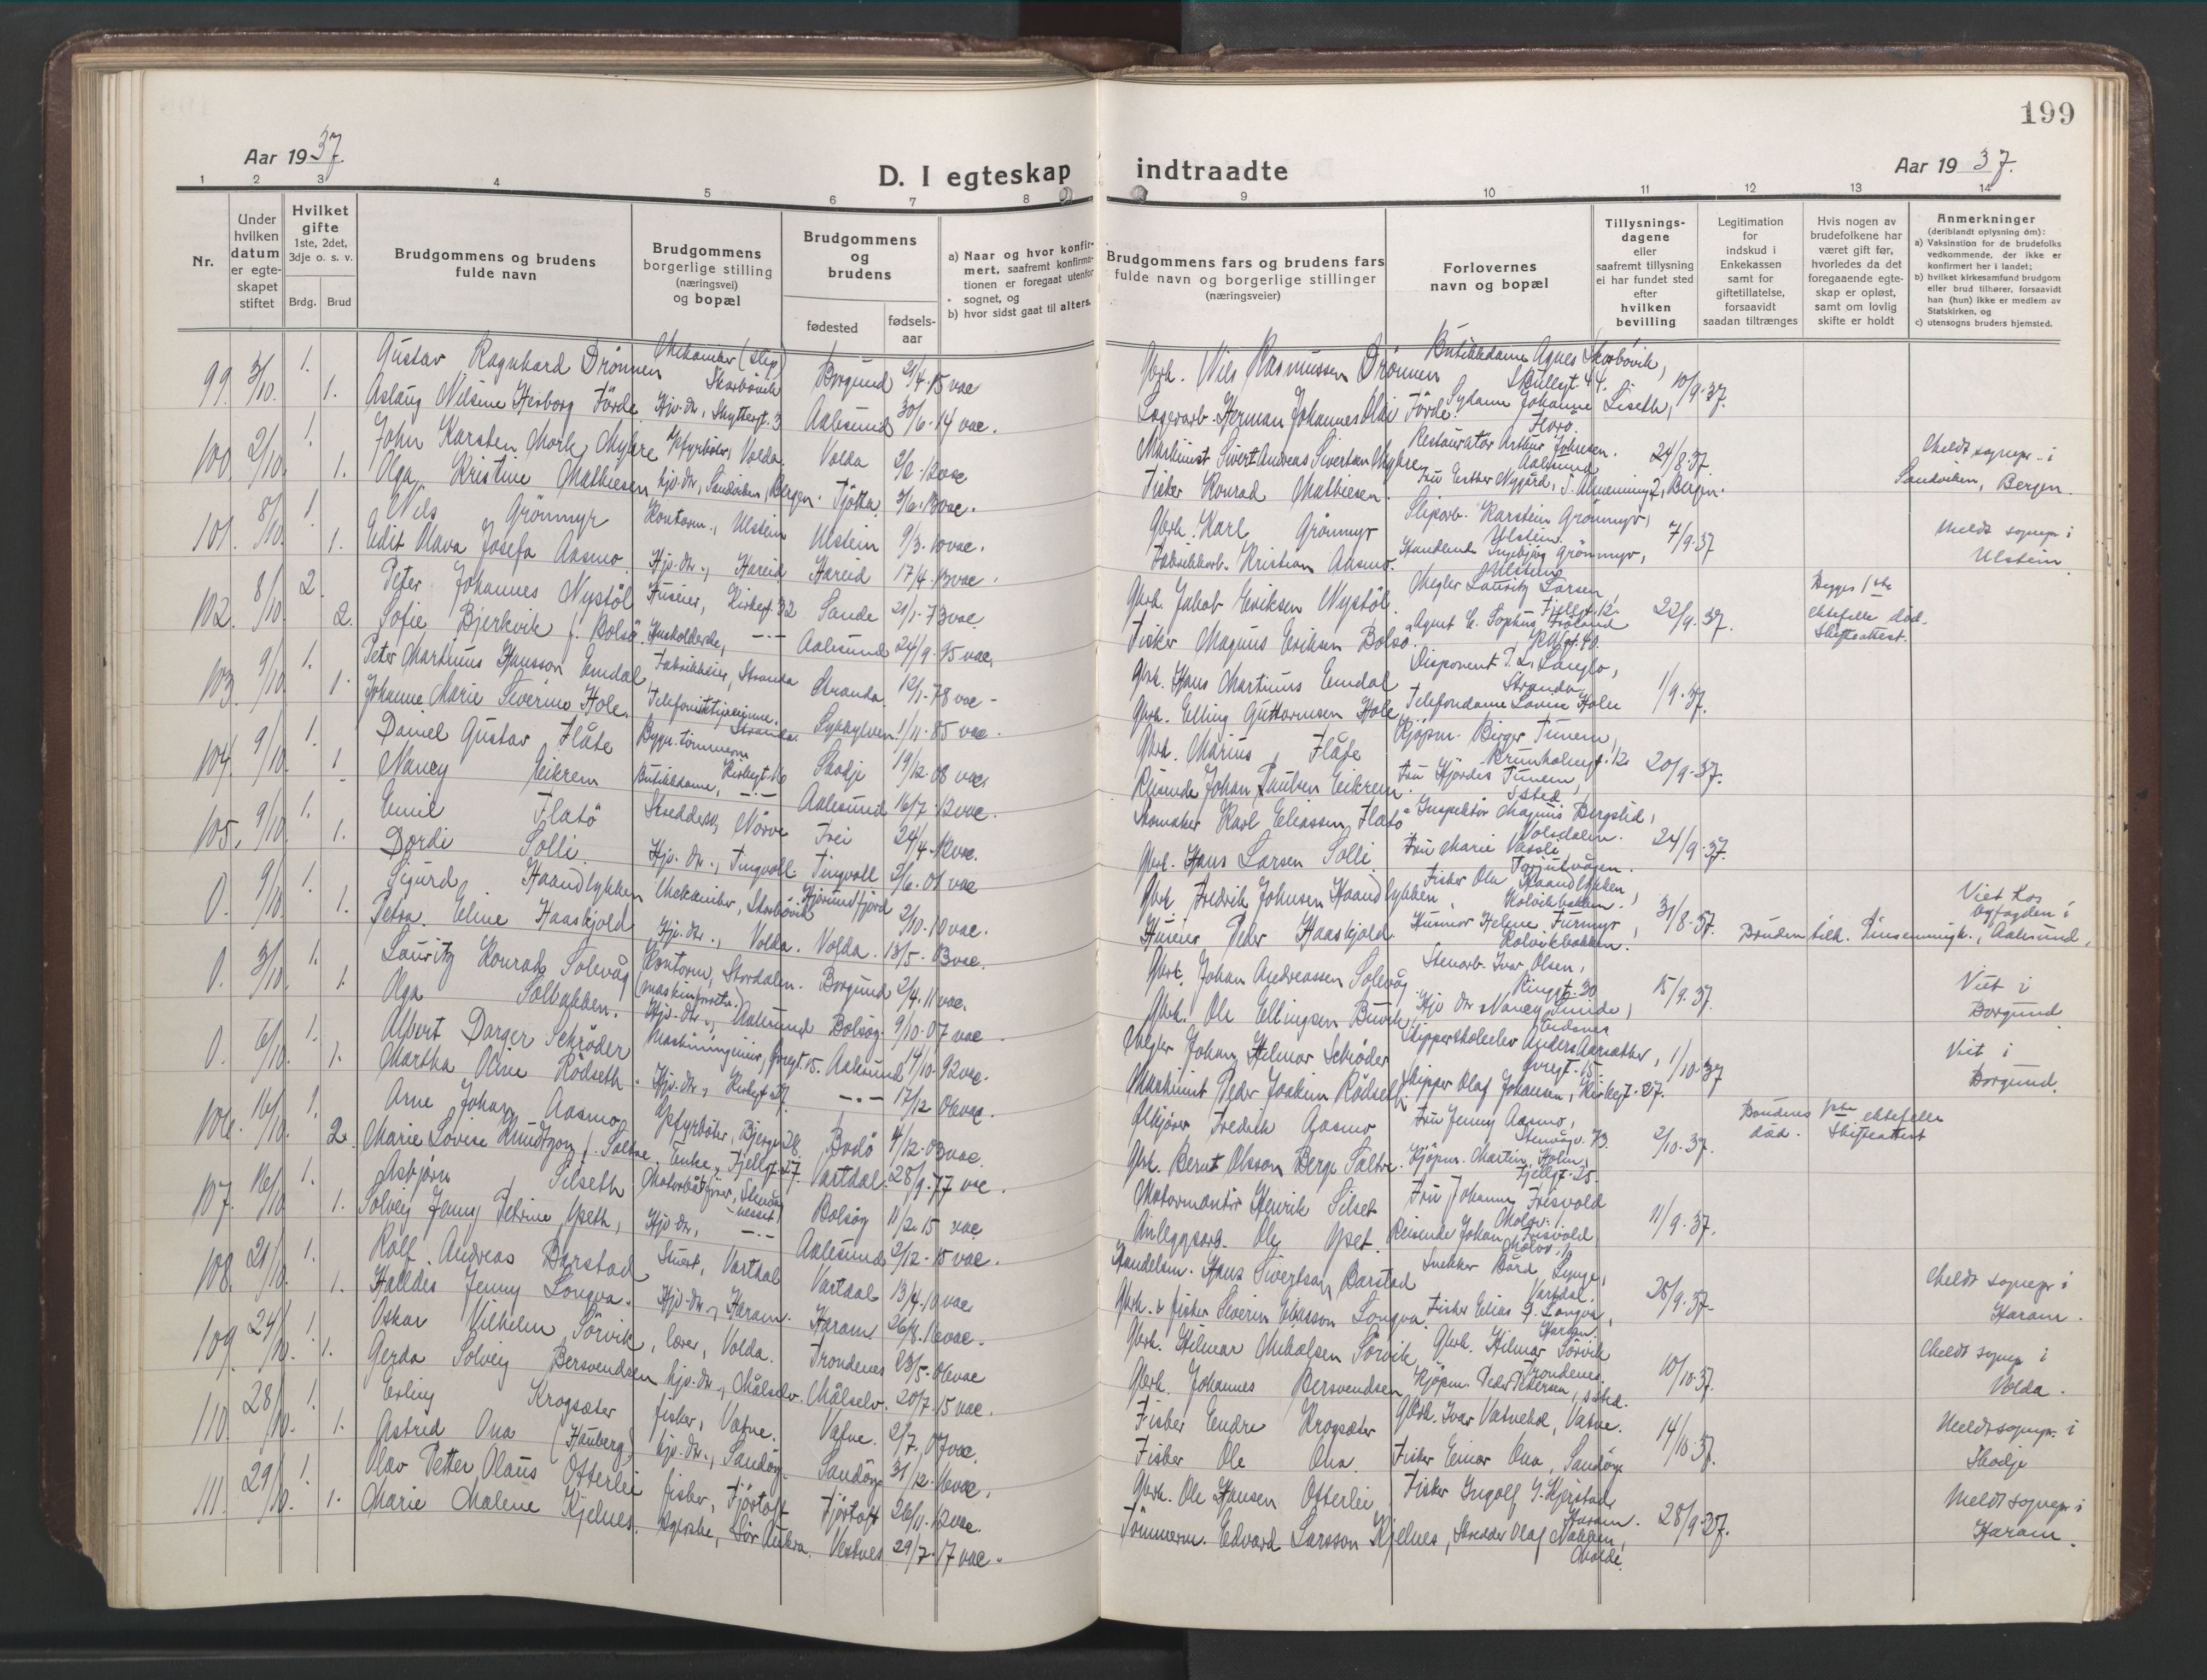 199
Aar 1937.
D. I egteskap indtraadte
Aar 1937.
1 2 3 4 5 6 7 8 9 10 11 12 13 14
Nr.
Under hvilken datum er egte-skapet stiftet
Hvilket gifte 1ste, 2det, 3dje o. s. v.
Brdg. Brud
Brudgommens og brudens fulde navn
Brudgommens borgerlige stilling (næringsvei) og bopæl
Brudgommens og brudens
fødested
fødsels-aar
a) Naar og hvor konfir-mert, saafremt konfirma-tionen er foregaat utenfor sognet, og
b) hvor sidst gaat til alters.
Brudgommens fars og brudens fars fulde navn og borgerlige stillinger (næringsveier)
Forlovernes navn og bopæl
Tillysnings-dagene eller saafremt tillysning ei har fundet sted efter hvilken bevilling
Legitimation for indskud i Enkekassen samt for giftetillatelse, forsaavidt saadan tiltrænges
Hvis nogen av brudefolkene har været gift før, hvorledes da det foregaaende egte-skap er opløst, samt om lovlig skifte er holdt
Anmerkninger (deriblandt oplysning om):
a) Vaksination for de brudefolks vedkommende, der ikke er konfirmert her i landet;
b) hvilket kirkesamfund brudgom eller brud tilhører, forsaavidt han (hun) ikke er medlem av Statskirken, og
c) utensogns bruders hjemsted.
99. 3/10. 1. Gustav Ragnhard Drönnen Mekaniker (slip) Skarbövik Borgund 21/4-15 vac Gbrk. Nils Rasmussen Drönnen Butikkdame Agnes Skarbövik, 10/9-37.
1. Aslaug Nilsine Herborg Förde Hjv. dtr., Skyttergt. 3 Aalesund 30/6-14 vac. Lagerarb. Herman Johannes Olai Förde. Sydame Johanne Liseth, Florö.
100. 2/10. 1. John Karsten Mork Myhre Fyrböter, Volda. Volda Maskinist Sivert Andreas Sivertsen Myhre Restauratör Arthur Johnsen. Aalesund 24/8-37. Meldt sognepr. i
1. Olga Kristine Mathiesen hjv. dtr., Sandviken, Bergen. Tjötta. 3/6-13 vac. Fisker Konrad Mathiesen. Fru Esther Nygård, Bergen. Sandviken, Bergen.
101. 8/10. 1. Nils Grönmyr Kontorm., Ulstein Ulstein 9/3-10 vac. Gbrk. Karl Grönmyr Sliparb. Karstein Grönmyr, Ulstein. 7/9-37 Meldt sognepr i
1. Edit Olava Josefa Aasmo. Hjv. dtr., Hareid Hareid 17/4-13 vac. Fabrikkarb. Kristian Aasmo. Ingebjörg Grönmyr, Ulstein. Ulstein.
102. 8/10. 2. Peter Johannes Nystöl Huseier, Kirkegt. 32 Sande 21/1-73 vac. Gbrk. Jakob Eriksen Nystöl. Megler Lauritz Larsen, Fjellgt. 12. 22/9-37. Begges 1ste
2. Sofie Bjerkvik f. Bolsö. Husholderske, —"— Aalesund 24/9-95 vac. Fisker Magnus Eriksen Bolsö. Agent E. Sophus Fröland ektefelle död. Skifteattest.
103. 9/10. 1. Peter Martinus Hansson Emdal Fabrikkeier, Stranda Stranda. 12/1-78 vac. Gbrk. Hans Martinus Emdal Disponent P. L. Langlo, Stranda 1/9-37.
1. Johanne Marie Severine Hole. Telefonistinne. Stranda. Sykkylven 1/11-85 vac. Gbrk. Elling Guttormsen Hole. Telefondame Lovise Hole
104. 9/10. 1. Daniel Gustav Flåte Bygn.tömmerm Kirkegt. 16 Skodje 19/12-08 vac. Gbrk. Marius Flåte Kjöpm. Birger Tunem, Brunholmgt. 12. 20/9-37.
1. Nancy Eikrem Butikkdame, —"— Aalesund 16/7-12 vac. Reisende Johan Paulsen Eikrem. Fru Hjördis Tunem, Ssted.
105. 9/10. 1. Emil Flatö Skredder, Nörve Frei 24/4-12 vac. Skomaker Karl Eliassen Flatö Inspektör Magnus Bergslid, Volsdalen. 24/9-37.
1. Dordi Solli. Hjv. dtr., Tingvoll. Tingvoll 3/6-07 vac Gbrk. Hans Larsen Solli. Fru Marie Vassli
0. 9/10. 1. Sigurd Haandlykken Mekaniker, Skarbövik Hjörundfjord 2/10-10 vac. Gbrk. Fredrik Johnsen Haandlykken, Fisker Ola Haandlykken, Kolvikbakken. 31/8-37. Viet hos
1. Petra Eline Haaskjold Hjv. dtr., Volda. Volda. 13/5-03 vac. Huseier Peder Haaskjold. Husmor Helene Furmyr, Kolvikbakken. Bruden tilh. Pinsemenigh., Aalesund. byfogden i
0. 3/10. 1. Lauritz Konrad Solevåg Kontorm, Stordalen. Borgund 2/4-11 vac. Gbrk. Johan Andreassen Solevåg Stenarb. Ivar Olsen, Ringgt. 30 15/9-37. Viet i
1. Olga Solbakken. Hjv. dtr., Aalesund Bolsöy. 9/10-07 vac Gbrk. Ole Ellingsen Buvik. Hjv. dtr. Nancy Borgund
0. 6/10. 1. Albert Dorger Schröder Maskiningeniör, Aalesund 14/10-92 vac. Megler Johan Hilmar Schröder Skipperskoleelev Anders Aarsæther, 1/10-37 Viet i
1. Martha Oline Rödseth. Hjv. dtr., Kirkegt. 27. —"— 17/12 06 vac. Maskinist Peder Joakim Rödseth. Skipper Olaf Johansen, Kirkegt. 27. Borgund.
106. 16/10. 1. Arne Johan Aasmo Fyrböter, Bjergv. 28. Bodö 4/12-03 vac. Fredrik Aasmo Fru Jenny Aasmo, Stenvågv. 73. 2/10-37. Brudens 1ste ektefelle
2. Marie Lovise Knudtzon f. Saltre, Enke, Fjellgt. 27. Vartdal. 28/9-77 vac. Gbrk. Bernt Olsson Berge Saltre. Kjöpm. Martin Holm, Fjellgt. 25. död. Skifteattest
107. 16/10 1. Asbjörn Silseth Motorbåtförer, Stenvågnesset Bolsöy 11/2 15 vac Motormontör Henrik Silset Fru Johanne Frisvold Molov. 1. 11/9-37.
1. Solveig Jenny Petrine Ypseth, Hjv. dtr., —"— Aalesund 2/12-15 vac. Anleggsarb. Ole Ypset. Reisende Johan Frisvold Molov. 1.
108. 21/10. 1. Rolf Andreas Barstad Smed, Vartdal Vartdal 13/4.10 vac. Handelsm. Hans Sivertsen Barstad Snekker Bård Lynge, Vartdal. 28/9-37. Meldt sognepr i
1. Halldis Jenny Longva. Hjv. dtr., Haram. Haram. 26/8.16 vac. Gbrk. & fisker Severin Eliasson Longva. Fisker Elias G. Longva, Haram. Haram.
109. 24/10. 1. Oskar Vilhelm Sörvik, lærer, Volda. Trondenes 23/5-06 vac Gbrk. Hilmar Mikalsen Sörvik Gbrk. Hilmar Sörvik Trondenes. 10/10-37. Meldt sognepr i
1. Gerda Solveig Bersvendsen hjv. dtr., Målselv. Målselv. 20/7.15 vac. Gbrk. Johannes Bersvendsen Kjöpm. Peder Petersen, ssted. Volda.
110. 28/10. 1. Erling Krogsæter fisker, Vatne. Vatne. 2/7.07 vac. Fisker Endre Krogsæter Gbrk. Ivar Vatnehol, Vatne. 14/10-37. Meldt sognepr. i
1. Astrid Ona (Hauberg) hjv. dtr., Sandöy. Sandöy 31/12.16 vac. Fisker Ole Ona. Fisker Einar Ona, Sandöy Skodje
111. 29/10. 1. Olav Petter Olaus Otterlei fisker, Fjörtoft Fjörtoft 26/11-12 vac. Gbrk. Ole Hansen Otterlei. Fisker Ingolf G. Hjerstad, Haram. 28/9-37. Meldt sognepr i
1. Marie Malene Kjelnes. Sör Aukra. Vestnes 29/7-17 vac. Tömmerm. Edvard Larsson Kjelnes, Skredder Olaf Nakken, Molde. Haram.